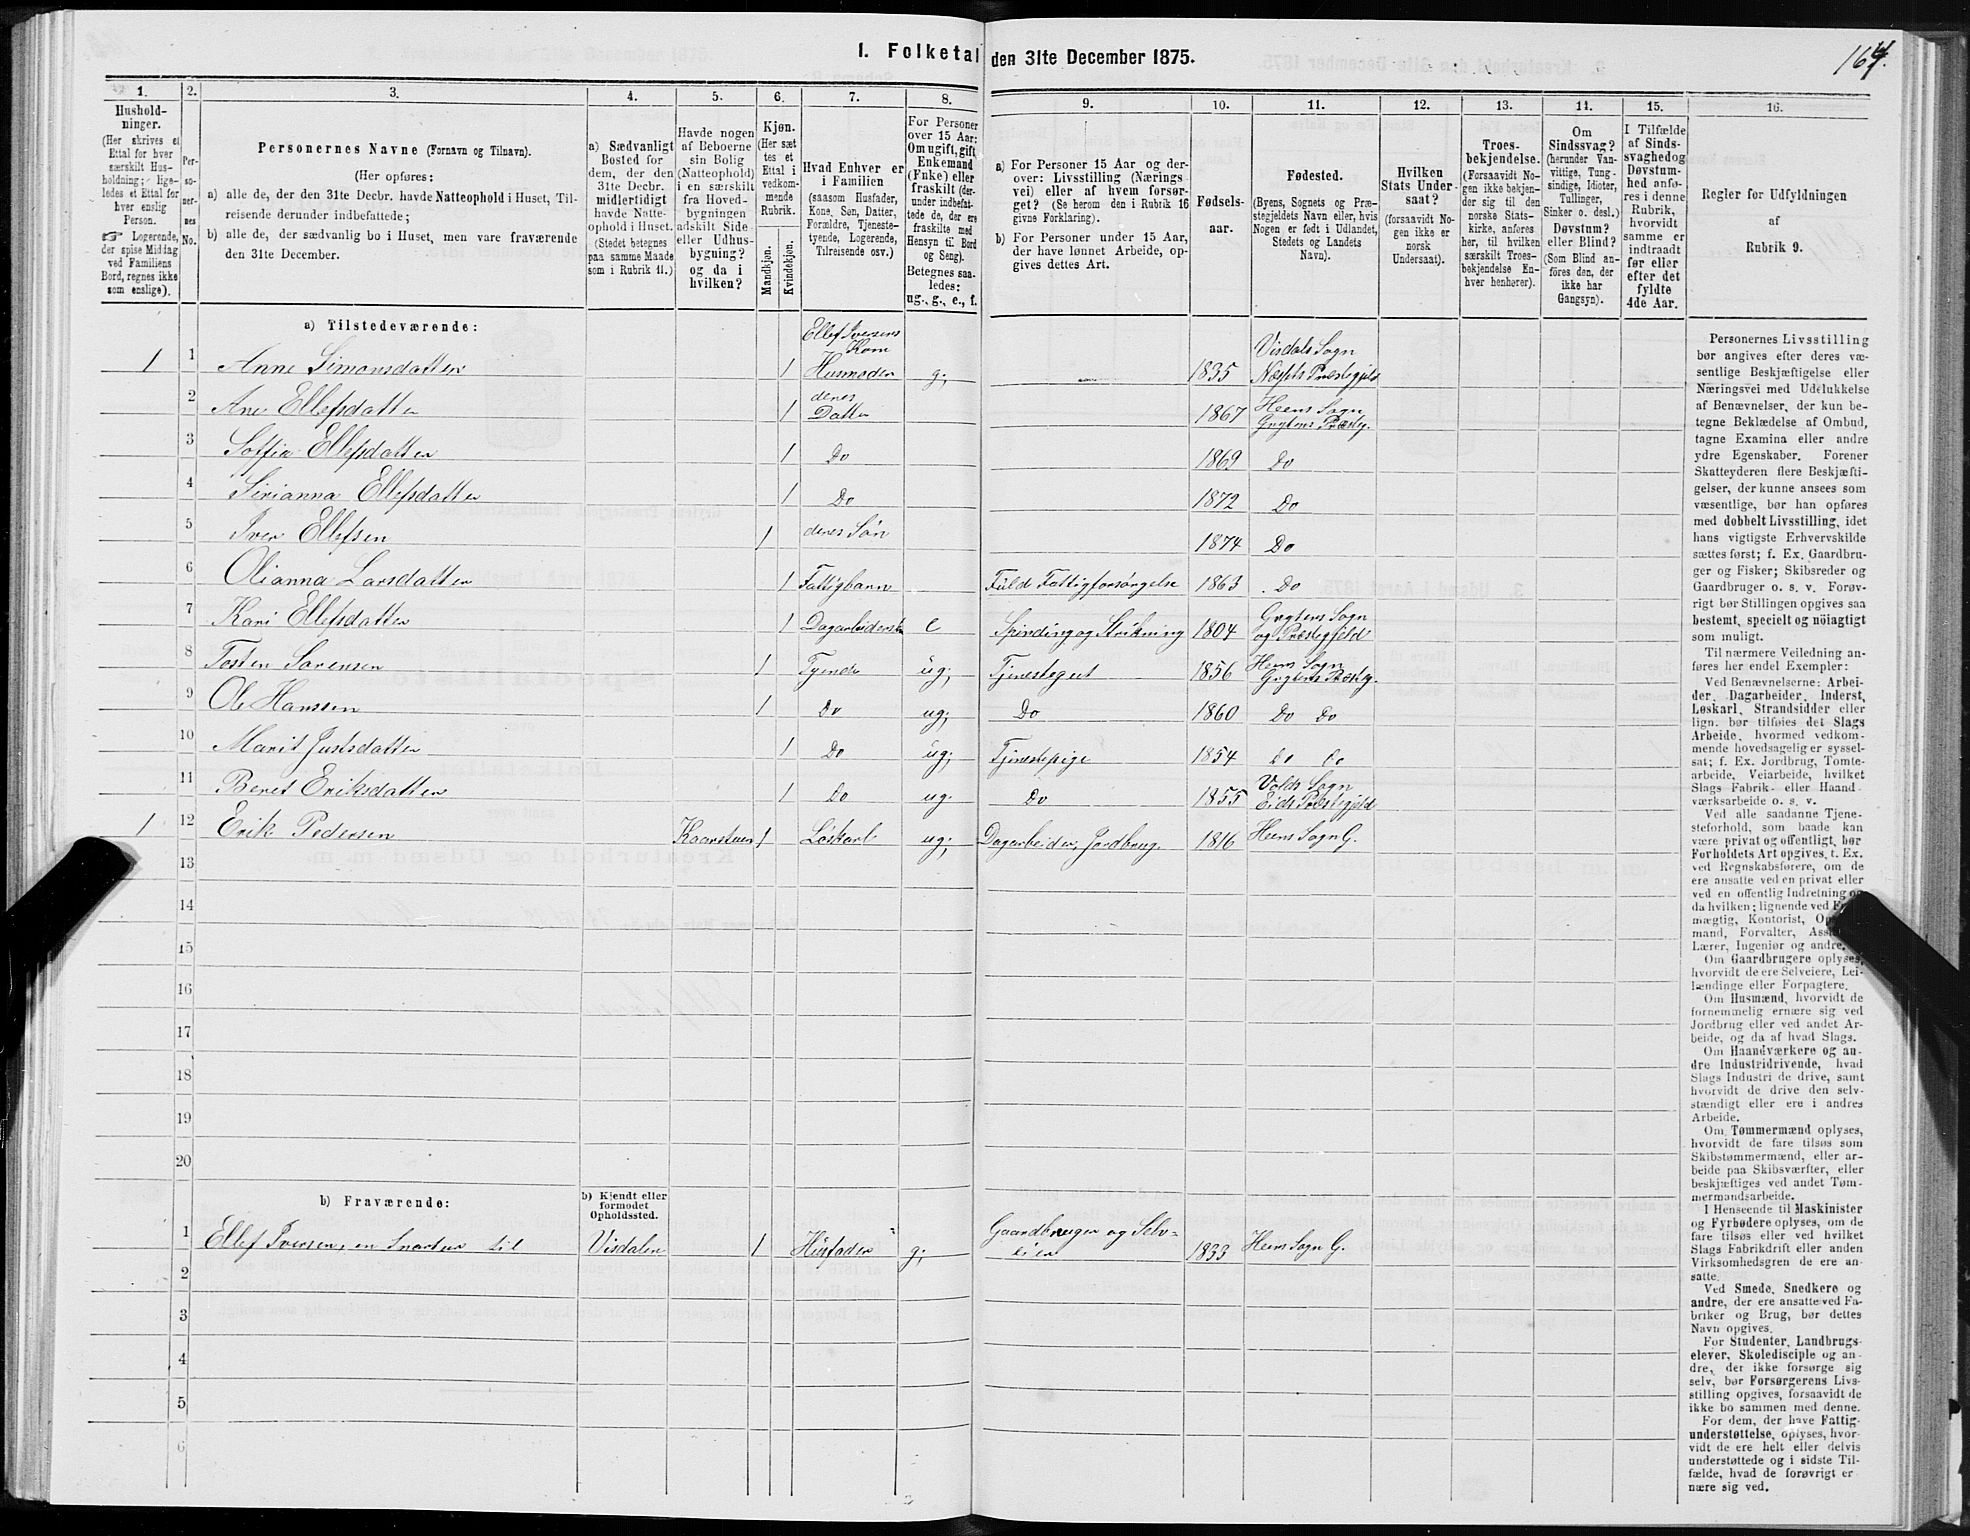 1. Folketal den 31te December 1875.
164.
1. 2. 3. 4. 5. 6. 7. 8. 9. 10. 11. 12. 13. 14. 15. 16.
Hushold-
ninger.
(Her skrives et
Ettal for hver
særskilt Hus-
holdning; lige-
ledes et Ettal for
hver enslig
Person.
☞ Logerende,
der spise Middag
ved Familiens
Bord, regnes ikke
som enslige).
Per-
so-
ner-
nes
No.
Personernes Navne (Fornavn og Tilnavn).
(Her opføres:
a) alle de, der den 31te Decbr. havde Natteophold i Huset, Til-
reisende derunder indbefattede;
b) alle de, der sædvanlig bo i Huset, men vare fraværende
den 31te December.
a) Sædvanligt
Bosted for
dem, der den
31te Decbr.
midlertidigt
havde Natte-
ophold i Huset.
(Stedet betegnes
paa samme Maade
som i Rubrik 11.)
Havde nogen
af Beboerne
sin Bolig
(Natteophold)
i en særskilt
fra Hoved-
bygningen
adskilt Side-
eller Udhus-
bygning?
og da i
hvilken?
Kjøn.
(Her sæt
tes et
Ettal i
vedkom-
mende
Rubrik.
Mandkjøn.
Kvindekjøn.
Hvad Enhver er
i Familien
(saasom Husfader,
Kone, Søn, Datter,
Forældre, Tjeneste-
tyende, Logerende,
Tilreisende osv.)
For Personer
over 15 Aar:
Om ugift, gift,
Enkemand
(Enke) eller
fraskilt (der-
under indbefat-
tede de, der ere
fraskilte med
Hensyn til Bord
og Seng).
Betegnes saa-
ledes:
ug., g., e., f.
a) For Personer 15 Aar og der-
over: Livsstilling (Nærings-
vei) eller af hvem forsør-
get? (Se herom den i Rubrik 16
givne Forklaring).
b) For Personer under 15 Aar,
der have lønnet Arbeide, op-
gives dettes Art.
Fødsels-
aar.
Fødested.
(Byens, Sognets og Præ-
stegjeldets Navn eller, hvis
Nogen er født i Udlandet,
Stedets og Landets
Navn).
Hvilken
Stats Under-
saat?
(forsaavidt No-
gen ikke er
norsk
Undersaat).
Troes-
bekjendelse.
(Forsaavidt No-
gen ikke bekjen-
der sig til den
norske Stats-
kirke, anføres
her, til hvilken
særskilt Troes-
bekjendelse En-
hver henhører).
Om
Sindssvag?
(herunder Van-
vittige, Tung-
sindige, Idioter,
Tullinger,
Sinker o. desl.)
Døvstum?
eller Blind?
(Som Blind an-
føres den, der
ikke har
Gangsyn).
I Tilfælde
af Sinds-
svaghed og
Døvstum-
hed anfø-
res i denne
Rubrik,
hvorvidt
samme er
indtraadt
før eller
efter det
fyldte
4de Aar.
Regler for Udfyldningen
af
Rubrik 9.
a) Tilstedeværende:
1 1 Anne Simonsdatter 1 Ellef Iversens Kone Husmoder g; 1835 Visdals Sogn Næssets Præstegjeld
2 Ane Ellefsdatter 1 deres Datter 1867 Heens Sogn Grytens Præsteg.
3 Soffia Ellefsdatter 1 Do 1869 Do
4 Sirianna Ellefsdatter 1 Do 1872 Do
5 Iver Ellefsen 1 deres Søn 1874 Do
6 Olianna Larsdatter 1 Fattigbarn Fuld Fattigforsørgelse 1863 Do
7 Kari Ellefsdatter 1 Dagarbeiderske e Spinding og Strikning 1804 Grytens Sogn og Præstegjeld
8 Tosten Sørensen 1 Tyende ug; Tjenestegut 1856 Heens Sogn Grytens Præsteg.
9 Ole Hanssen 1 Do ug; Do 1860 Do Do
10 Marit Justsdatter 1 Do ug; Tjenestepige 1854 Do Do
11 Beret Eriksdatter 1 Do ug. Do 1855 Volds Sogn Eids Præstegjeld
1 12 Erik Pedersen Kaarstuen 1 Løskarl ug; Dagarbeider, Jordbrug. 1816 Heens Sogn G.
13
14
15
16
17
18
19
20
b) Fraværende:
b) Kjendt eller
formodet
Opholdssted.
1 Ellef Iversen, en Snartur til Visdalen 1 Husfader g; Gaardbruger og Selv-
eier 1833 Heens Sogn G.
2
3
4
5
6
Personernes Livsstilling
bør angives efter deres væ-
sentlige Beskjæftigelse eller
Næringsvei med Udelukkelse
af Benævnelser, der kun be-
tegne Beklædelse af Ombud,
tagne Examina eller andre
ydre Egenskaber. Forener
Skatteyderen flere Beskjæfti-
gelser, der kunne ansees som
væsentlige, bør han opføres
med dobbelt Livsstilling, idet
hans vigtigste Erhvervskilde
sættes først; f. Ex. Gaardbru-
ger og Fisker; Skibsreder og
Gaardbruger o. s. v. Forøv-
rigt bør Stillingen opgives saa
bestemt, specielt og nöiagtigt
som muligt.
Til nærmere Veiledning an-
føres her endel Exempler:
Ved Benævnelserne: Arbei-
der, Dagarbeider, Inderst,
Løskarl, Strandsidder eller
lign. bør tilføies det Slags
Arbeide, hvormed vedkom-
mende hovedsagelig er syssel-
sat; f. Ex. Jordbrug, Tomte-
arbeide, Veiarbeide, hvilket
Slags Fabrik- eller Haand-
værksarbeide o. s. v.
Ved alle saadanne Tjene-
steforhold, som baade kan
være privat og offentligt, bør
Forholdets Art opgives, t. Ex.
ved Regnskabsførere, om de
ere ansatte ved en privat eller
ved en offentlig Indretning og
da hvilken; lignende ved
mægtig, Kontorist,
mand, Forvalter,
Lærer, Ingeniør og andre.
Om Gaardbrugere oplyses,
hvorvidt de ere Selveiere, Lei-
lændinge eller Forpagtere.
Om Husmænd, hvorvidt de
fornemmelig ernære sig ved
Jordbrug eller ved andet Ar-
beide, og da af hvad Slags.
Om Haandværkere og an-
dre Industridrivende, hvad
Slags Industri de drive, samt
hvorvidt de drive den selv-
stændigt eller ere i andres
Arbeide.
Om Tømmermænd oplyses,
hvorvidt de fare tilsøs som
Skibstømmermænd, eller ar-
beide paa Skibsværfter, eller
beskjæftiges ved andet Tøm-
mermandsarbeide.
I Henseende til Maskinister
og Fyrbødere oplyses, om de
fare tilsøs eller ved hvilket
Slags Fabrikdrift eller anden
Virksomhedsgren de ere an-
satte.
Ved Smede, Snedkere og
andre, der ere ansatte ved Fa-
briker og Brug, bør dettes
Navn opgives.
For Studenter, Landbrugs-
elever, Skoledisciple og an-
dre, der ikke forsørge sig
selv, bør Forsørgerens Livs-
stilling opgives, forsaavidt de
ikke bo sammen med denne.
For dem, der have Fattig-
understøttelse, oplyses, hvor-
vidt de ere helt eller delvis
understøttede og i sidste Til-
fælde, hvad de forøvrigt er-
nære sig ved.